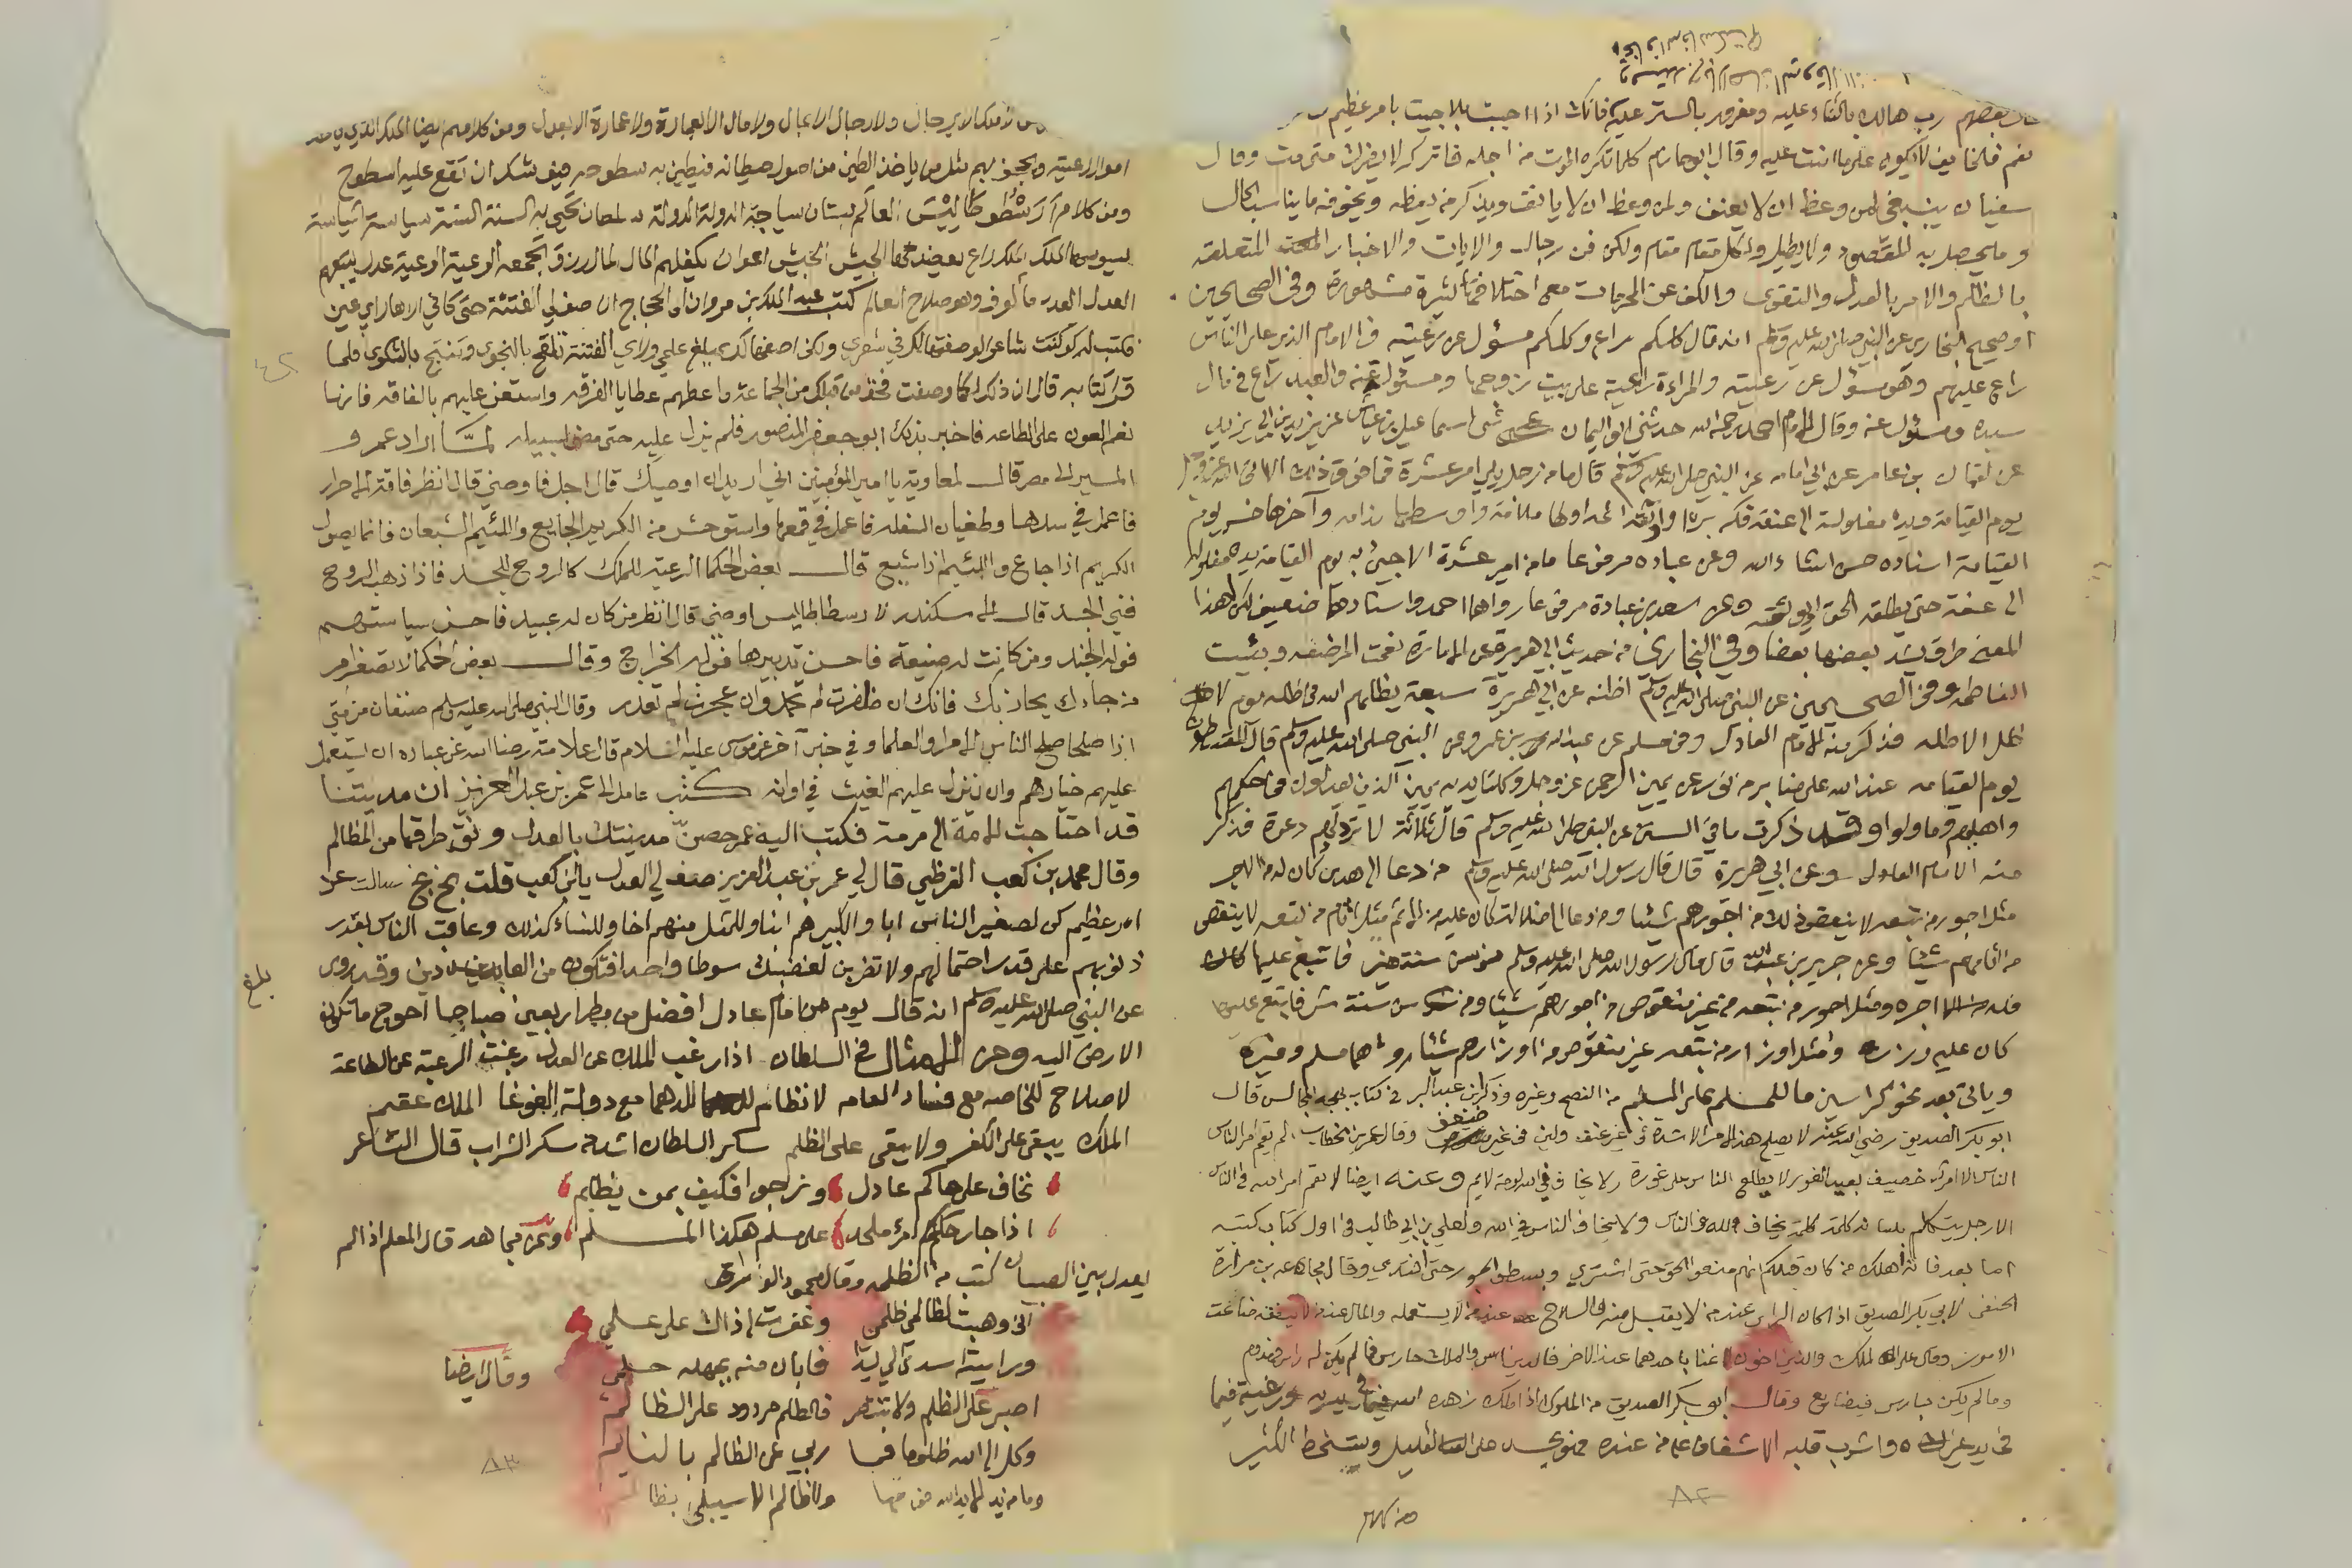 بعضهم رب هالك بالثناء عليه ومغرور بالستر عليه فانك اذا اجبت بلا جيت بامر عظيم
نعم فلخايف لا يكون على ما انت عليه وقال ابو حازم كلما تكره الموت من اجله فاتركه لا يضرك متى مت وقال
سفيان ينبغي لمن وعظ ان لا يعنف ولمن وعظ ان لا يانف ويذكر من يعظه ويخوفه ما يناسب الحال
وما يحصل به المقصود ولا يطيل ولكل مقام مقام ولكل فن رجال والايات والاخبار المتعلقة
بالظلم والامر بالعدل والتقوى والكف عن المحرمات مع اختلافها كثيرة مشهورة وفي الصحيحين
او صحيح البخاري عن النبي صلى الله عليه وسلم انه قال كلكم راع وكلكم مسؤل عن رعيته فالامام الذي على الناس
راع عليهم وهو مسؤل عن رعيته والمراءة راعية على بيت زوجها ومسئولة عنه والعبد راع في مال
سيده ومسؤل عنه وقال الامام احمد رحمه الله حدثني ابو اليمان ثنى اسماعيل بن عياش عن يزيد بن ابي يزيد
عن لقمان بن عامر عن ابي امامه عن النبي صلى الله عليه وسلم قال ما من رجل يلي امر عشرة فما فوق ذلك الا اتى الله عز وجل
يوم القيامة ويده مغلولة الى عنقه فكه بره او اوثقه اثمه اولها ملامة واوسطها ندامه وآخرها خزي يوم
القيامة اسناده حسن انشاء الله وعن عباده مرفوعا ما من امير عشرة الا جيئ به يوم القيامة يده مغلوله
الى عنقه حتى يطلقه الحق او يوثقه وعن سعد بن عبادة مرفوعا رواهما احمد واسنادهما ضعيف لكن لهذا
المعنى طرق يشد بعضها بعضا وفي البخاري من حديث ابي هريرة عن الامارة نعمت المرضعه وبئست
الفاطمه وفي الصحيحين عن النبي صلى الله عليه وسلم اظنه عن ابي هريرة سبعة يظلهم الله في ظله يوم لا
ظل الا ظله فذكر منه الامام العادل وفي مسلم عن عبد الله بن عمرو عن النبي صلى الله عليه وسلم قال المقسطون
يوم القيامه عند الله على منابر من نور عن يمين الرحمن عز وجل وكلتا يديه يمين الذين يعدلون في حكمهم
واهليهم وما ولوا وقد ذكرت ما في السنن عن النبي صلى الله عليه وسلم قال ثلاثة لا ترد لهم دعوة فذكر
منه الامام العادل وعن ابي هريرة قال قال رسول الله صلى الله عليه وسلم من دعا الى هدى كان له من الاجر
مثل اجور من تبعه لا ينقص ذلك من اجورهم شيئا ومن دعا الى ضلالة كان عليه من الاثم مثل اثام من تبعه لا ينقص
من اثامهم شيئا وعن جرير بن عبد الله قال قال رسول الله صلى الله عليه وسلم من سن سنة خير فاتبع عليها كان
فله اجره ومثل اجور من تبعه من غير منقوص من اجورهم شيئا ومن سن سنة شر فاتبع عليها
كان عليه وزره ومثل اوزار من تبعه غير منقوص من اوزارهم شيئا رواهما مسلم وغيره
وياتي بعد نحو كراسين ما للمسلم على المسلم من النصح وغيره وذكر ابن عبد البر في كتاب بهجة المجالس قال
ابو بكر الصديق رضي الله عنه لا يصلح هذا الامر الا شدة في غير عنف ولين في غير ضعف وقال عمر بن الخطاب لم يقم امر الناس
الناس الا امرؤ حصيف بعيد الغور لا يطلع الناس على عورة ولا يخاف في الله لومة لايم وعنه ايضا لا يقم امر الله في الناس
الا رجل يتكلم بلسانه كلمة يخاف الله في الناس ولا يخاف الناس في الله ولعلي بن ابي طالب في اول كتاب كتبه
اما بعد فانه اهلك من كان قبلكم انهم منعوا الحق حتى اشتري وبسطوا الجور حتى افتدي وقال مجاعه بن مرارة
الحنفي لابي بكر الصديق اذا كان الراي عند من لا يقبل منه والسلاح عند من لا يستعمله والمال عند من لا ينفقه ضاعت
الامور وقال علي الملك والدين اخوان لا غنا باحدهما عن الاخر فالدين اس والملك حارس فما لم يكن له اس فمهدوم
وما لم يكن حارس فضايع وقال ابو بكر الصديق من الملوك اذا ملك زهده الله فيما في يديه ورغبه فيما
في يد غيره واشرب قلبه الاشفاق على من عنده فهو يحسد على القليل ويتسخط الكثير
٨٢
لا ملك الا برجال ولا رجال الا بمال ولا مال الا بعمارة ولا عمارة الا بعدل ومن كلامهم ايضا الملك الذي ياخذ
اموال رعيته ويجحف بهم مثل من ياخذ الطين من اصول حيطانه فيطين به سطوحه فيوشك ان تقع عليه السطوح
ومن كلام ارسطوطاليس العالم بستان سياجه الدولة الدولة سلطان تحيى به السنة السنة سياسة السياسة
يسوسها الملك الملك راع يعضده الجيش الجيش اعوان يكفلهم المال المال رزق تجمعه الرعية الرعية عدل يتبعهم
العدل العدل مالوف وهو صلاح العالم كتب عبد الملك بن مروان الى الحجاج ان صف لي الفتنة حتى كاني اراها راي عين
فكتب لو كنت شاعرا لوصفتها لك في شعري ولكني اصفها لك بمبلغ علمي ورايي الفتنة تلقح بالنجوى وتنتج بالشكوى فلما
قرا كتابه قال ان ذلك لكما وصفت فخذ من قبلك من الجماعة واعطهم عطايا الفرقه واستعن عليهم بالفاقه فانها
نعم العون على الطاعه فاخبر بذلك ابو جعفر المنصور فلم يزل عليه حتى مضى لسبيله لما اراد عمرو
المسير الى مصر قال لمعاوية يا امير المؤمنين اني اريد ان اوصيك قال اجل فاوصني قال انظر فاقة الاحرار
فاعمل في سدها وطغيان السفله فاعمل في قمعها واستوحش من الكريم الجايع واللئيم الشبعان فانما يصول
الكريم اذا جاع واللئيم اذا شبع قال بعض الحكما الرعية للملك كالروح للجسد فاذا ذهب الروح
فني الجسد قال الاسكندر لارسطاطاليس اوصني قال انظر من كان له عبيد فاحسن سياستهم
فوله الجند ومن كانت له ضيعة فاحسن تدبيرها فوله الخراج وقال بعض الحكما لا تصغر امر
من جاءك يحاربك فانك ان ظفرت لم تحمد وان عجزت لم تعذر وقال النبي صلى الله عليه وسلم صنفان من امتي
اذا صلحا صلح الناس الامرا والعلما وفي خبر آخر عن موسى عليه السلام قال علامة رضا الله عن عباده ان يستعمل
عليهم خيارهم وان ينزل عليهم الغيث في اوانه كتب عامل الى عمر بن عبد العزيز ان مدينتنا
قد احتاجت الى مرمة فكتب اليه عمر حصن مدينتك بالعدل ونق طرقها من المظالم
وقال محمد بن كعب القرظي قال لي عمر بن عبد العزيز صف لي العدل يا ابن كعب قلت بخ بخ سالت عن
امر عظيم كن لصغير الناس ابا ولكبيرهم ابنا وللمثل منهم اخا وللنساء كذلك وعاقب الناس بقدر
ذنوبهم على قدر احتمالهم ولا تضربن لغضبك سوطا واحدا فتكون من العادين وقد يروى
عن النبي صلى الله عليه وسلم انه قال يوم من امام عادل افضل من مطر اربعين صباحا احوج ما تكون
الارض اليه ومن الامثال في السلطان اذا رغب الملك عن العدل رغبت الرعية عن الطاعة
لا صلاح للخاصه مع فساد العامه لا نظام للدهما مع دولة الغوغا الملك عقيم
الملك يبقى على الكفر ولا يبقى على الظلم سكر السلطان اشد من سكر الشراب قال الشاعر
نخاف على حاكم عادل ونرجوا فكيف بمن يظلم
اذا جار حكم امرئ ملحد على مسلم هكذا المسلم وعن مجاهد قال المعلم اذا لم
يعدل بين الصبيان كتب من الظلمه وقال محمود الوراق
اني وهبت لظالمي ظلمي وغفرت ذاك على علمي
ورايته اسدى الي يدا فابان منه بجهله حلمي
وقال ايضا
اصبر على الظلم ولا تنتصر فالظلم مردود على الظالم
وكل الى الله ظلوما فما ربي عن الظالم بالنايم
وما من يد الا يد الله فوقها ولا ظالم الا سيبلى بظالم
بلغ
٨٣